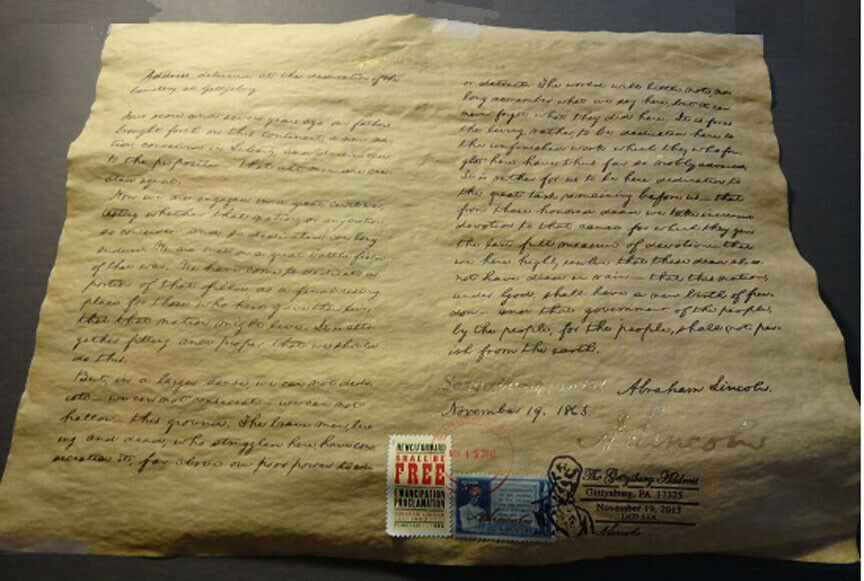 Address delivered at the dedication of the
Cemetery at Gettysburg.
Four score and seven years ago our fathers
brought forth on this continent, a new na-
tion, conceived in Liberty, and dedicated
to the proposition that all men are cre-
ated equal.
Now we are engaged in a great civil war,
testing whether that nation, or any nation
so conceived and so dedicated, can long
endure. We are met on a great battle-field
of that war. We have come to dedicate a
portion of that field, as a final resting
place for those who here gave their lives,
that that nation might live. It is alto-
gether fitting and proper that we should
do this.
But, in a larger sense, we can not dedi-
cate— we can not consecrate— we can not
hallow— this ground. The brave men, liv-
ing and dead, who struggled here, have con-
secrated it, far above our poor power to add
or detract. The world will little note, nor
long remember what we say here, but it can
never forget what they did here. It is for us
the living, rather, to be dedicated here to
the unfinished work which they who fou-
ght here have thus far so nobly advanced.
It is rather for us to be here dedicated to
the great task remaining before us— that
from these honored dead we take increased
devotion to that cause for which they gave
the last full measure of devotion— that
we here highly resolve that these dead shall
not have died in vain— that this nation,
under God, shall have a new birth of free-
dom— and that government of the people,
by the people, for the people, shall not per-
ish from the earth.
Abraham Lincoln.
November 19. 1863.
A. Lincoln
HENCEFORWARD
SHALL BE
FREE
EMANCIPATION
PROCLAMATION
ABRAHAM LINCOLN
A. Lincoln
The Gettysburg Address
Gettysburg, PA 17325
November 19, 2013
OLD STA
A. Lincoln